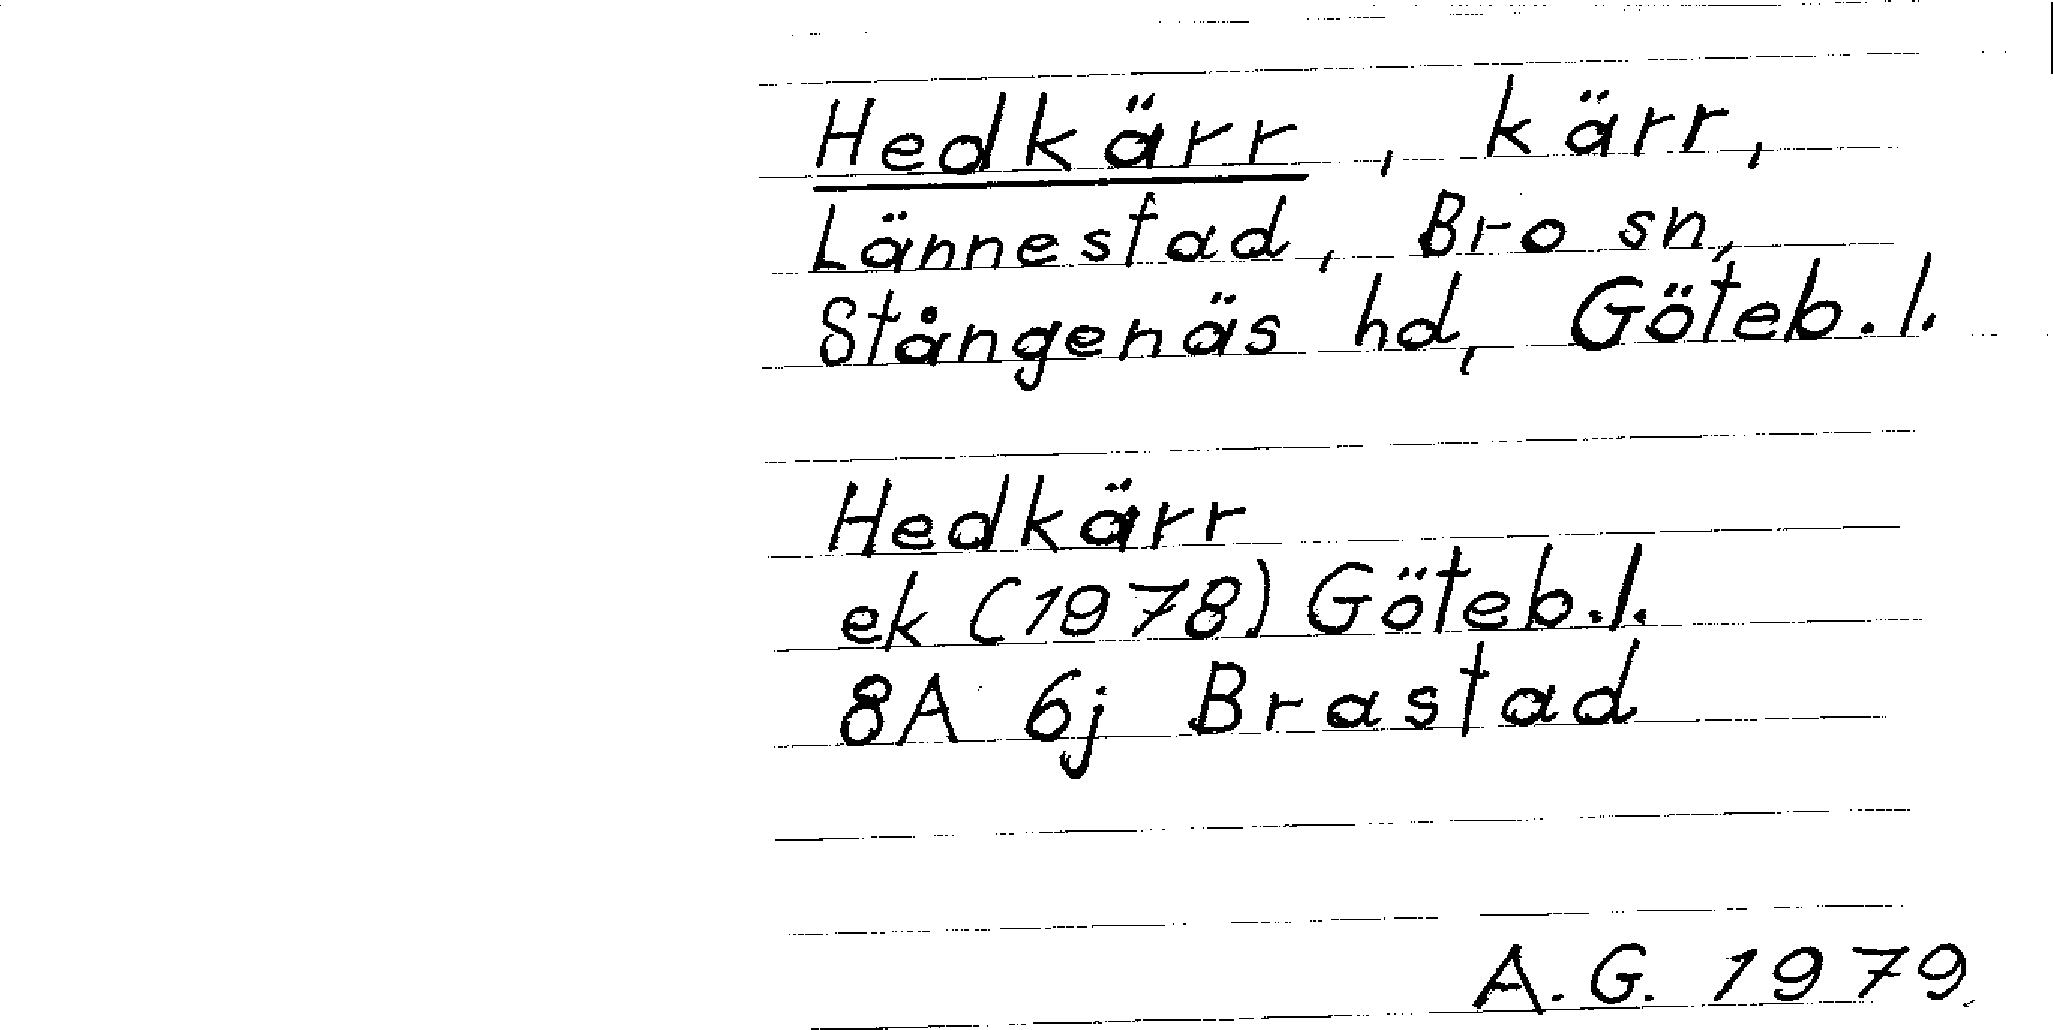 Hedkärr, kärr,
Lännestad, Bro sn,
Stångenäs hd, Göteb.l.
Hedkärr
ek (1978) Göteb.l.
8A 6j Brastad
A.G. 1979